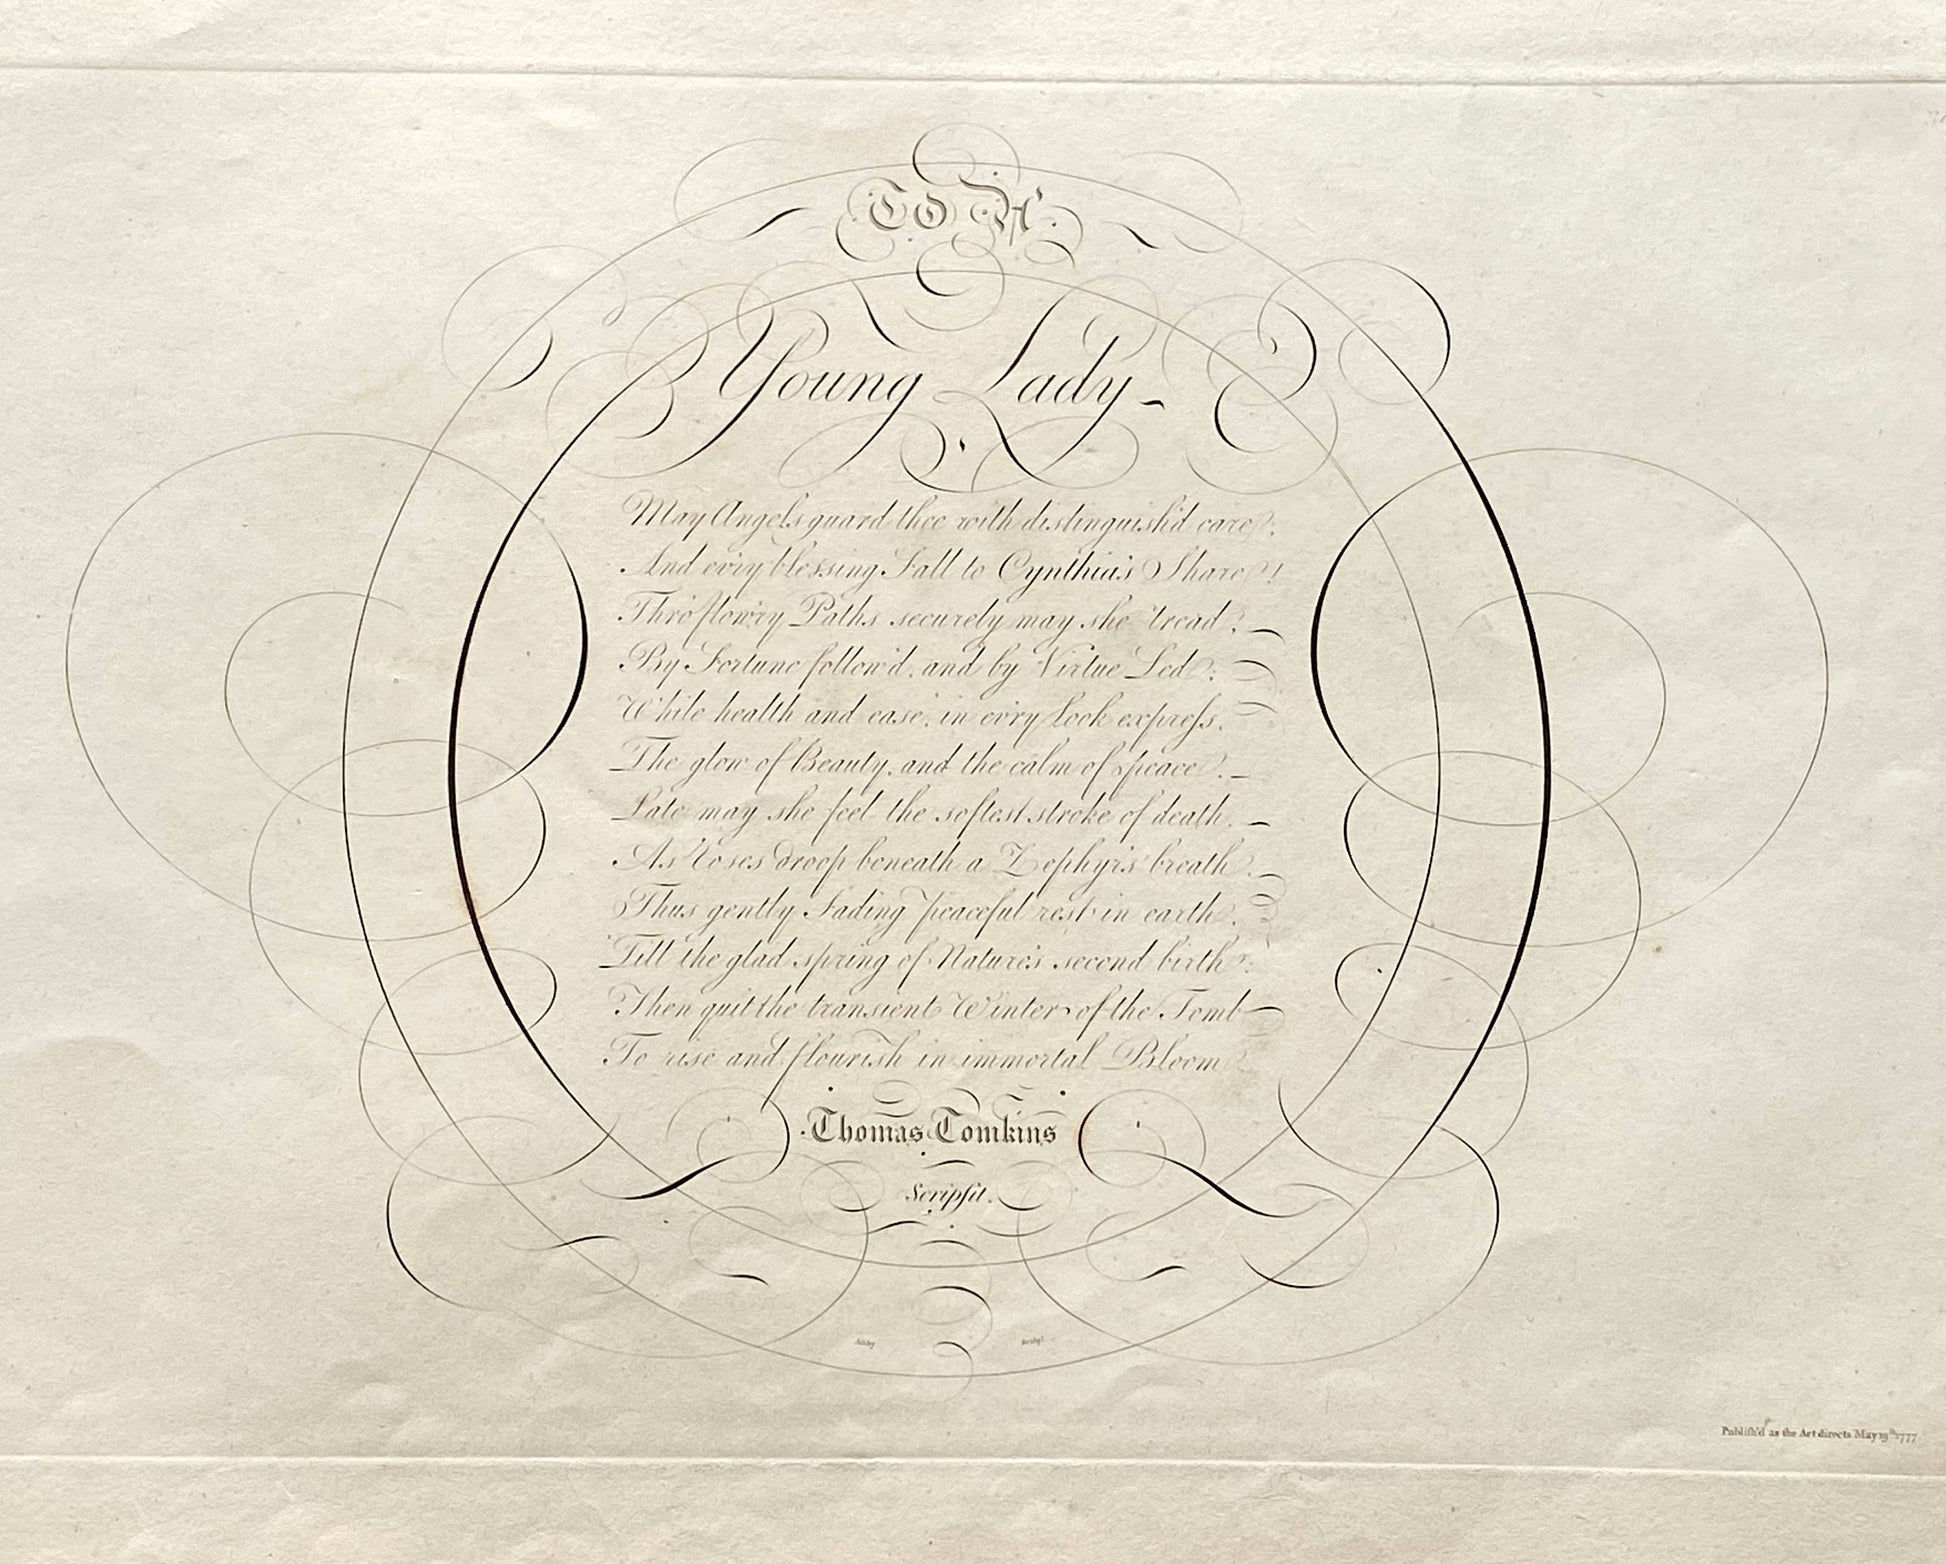 TO A
Young Lady
May Angels guard thee with distinguish'd care,
And ev'ry blessing Fall to Cynthia's Share!
Thro' flow'ry Paths securely may she tread,
By Fortune follow'd, and by Virtue Led;
While health and ease, in ev'ry Look express,
The glow of Beauty, and the calm of peace.
Late may she feel the softest stroke of death,
As roses droop beneath a Zephyr's breath.
Thus gently Fading, peaceful rest in earth,
Till the glad spring of Nature's second birth:
Then quit the transient Winter of the Tomb
To rise and flourish in immortal Bloom
Thomas Tomkins
Scripsit.
Ashby Sculpt.
Publish'd as the Act directs May 19th 1777